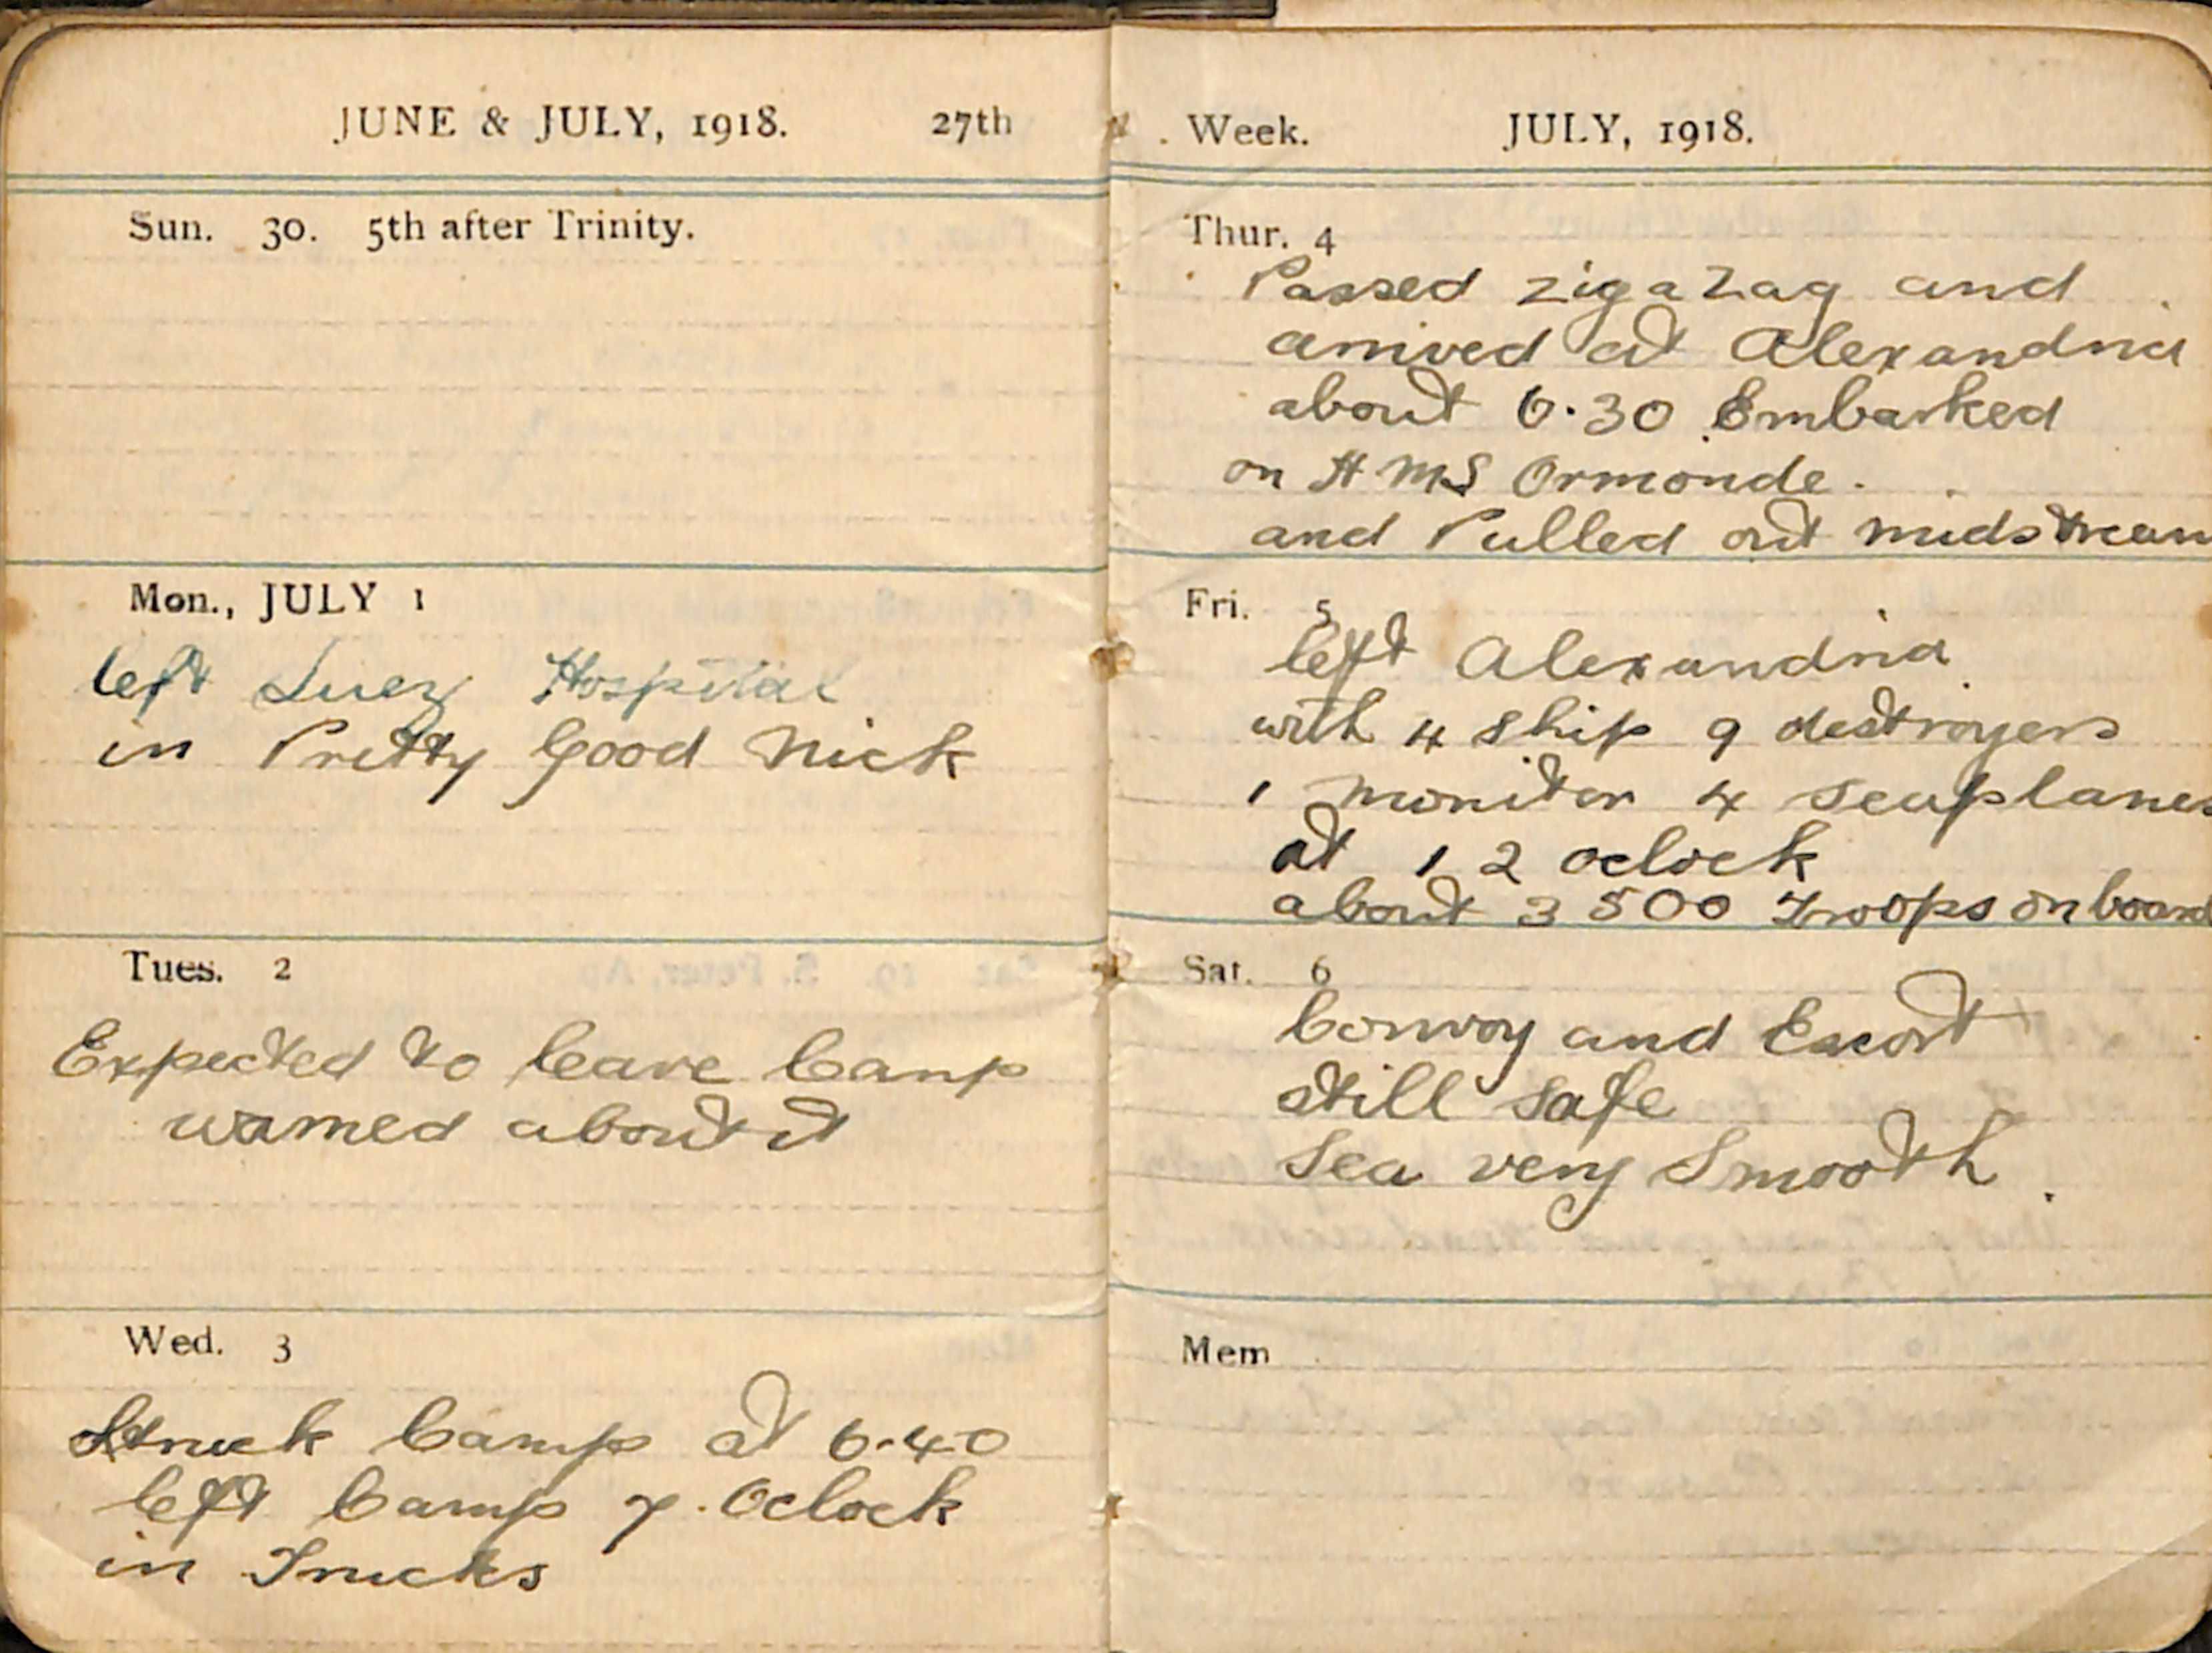 JUNE & JULY, 1918. 27th
Sun. 30. 5th after Trinity.
Mon., JULY 1
left Suez Hospital
in Pretty Good Nick
Tues. 2
Expected to leave Camp
warned about it
Wed. 3
Struck Camp at 6.40
left Camp 7. Oclock
in Trucks
Week. JULY, 1918.
Thur. 4
Passed zigazag and
arrived at Alexandria
about 6.30 Embarked
on HMS Ormonde.
and Pulled out midstream
Fri. 5
left Alexandria
with 4 ship 9 destroyers
1 moniter 4 seaplanes
at 12 oclock
about 3500 Troops on board
Sat. 6
Convoy and Escort
still safe
Sea very Smooth.
Mem